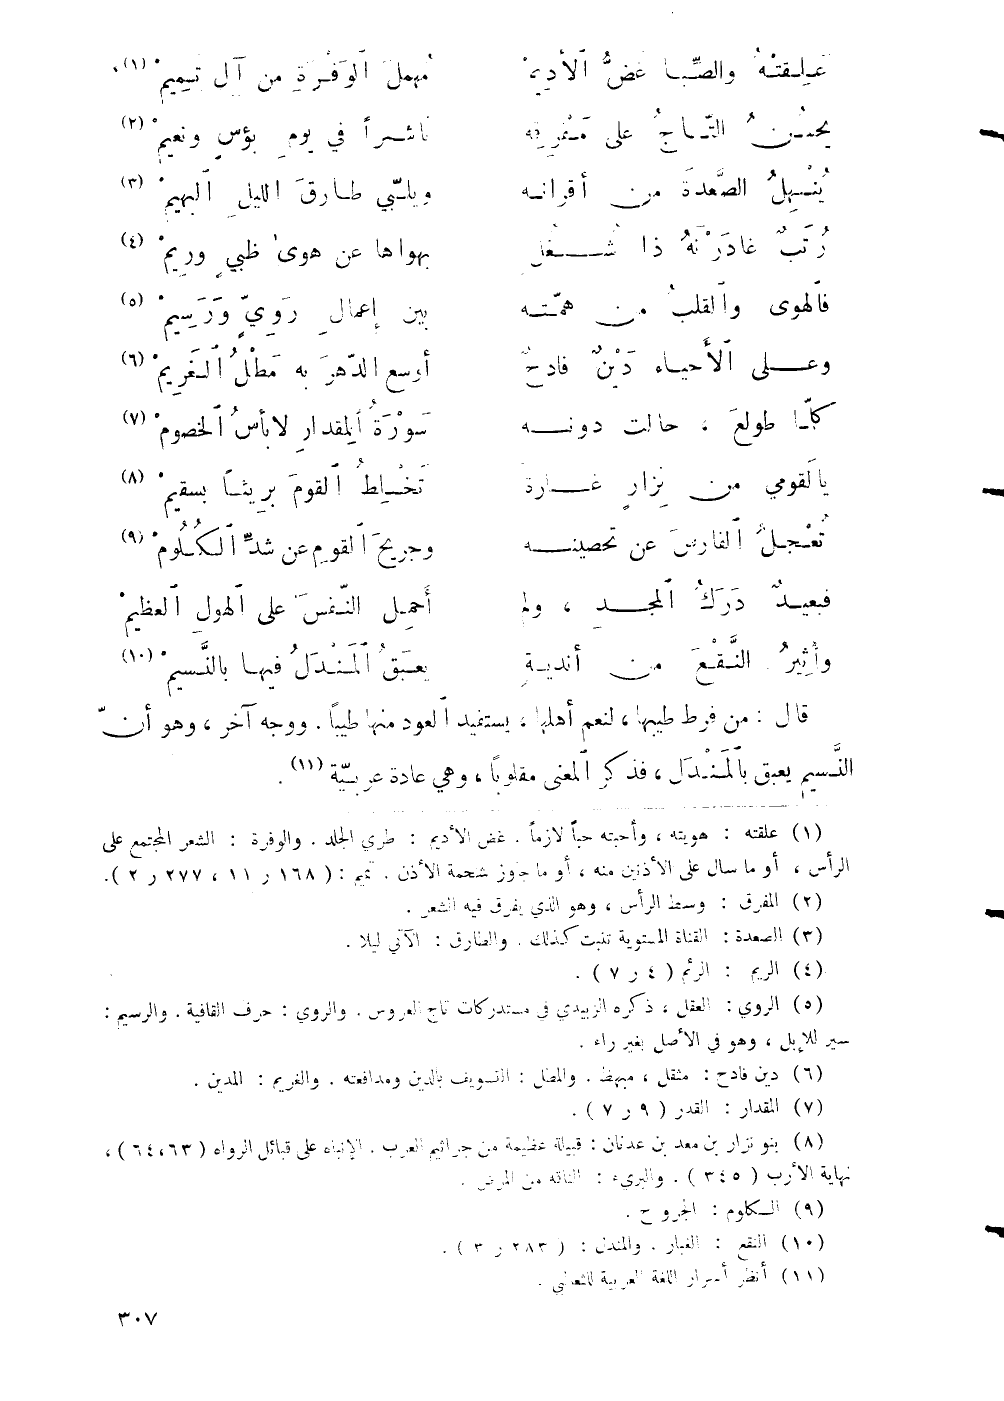 عَلِقتْهُ والصِّبا غضُّ ٱلأديمْ مُهملَ ٱلوَفْرَةِ من آلِ تَمِيمْ (١)
يحسُنُ التّاجُ على مَفْرِقِهِ ناشراً في يومِ بؤسٍ ونعيمْ (٢)
يُنْهِلُ الصَّعدةَ من أقرانه ويلبّي طارقَ الليلِ ٱلبهيمْ (٣)
رُتَبٌ غادَرْنَهُ ذا شُغُلٍ بهواها عن هوىٰ ظبيٍ وريمْ (٤)
فٱلهوى وٱلقلبُ من همّته بين إعمالِ رَوِيٍّ وَرَسِيمْ (٥)
وعلى ٱلأَحياء دَيْنٌ فادحٌ أوسع الدّهرَ به مَطْلُ ٱلغَرِيمْ (٦)
كلّما طولعَ ، حالت دونه سَوْرَةُ ٱلمِقدارِ لا بأسُ ٱلخصومْ (٧)
يا لَقومي من نِزارٍ غارةً تَخْلِطُ ٱلقومَ بريئاً بسقيمْ (٨)
تُعْجلُ ٱلفارسَ عن تحصينه وجريحَ ٱلقومِ عن شدِّ ٱلكُلُومْ (٩)
فبعيدٌ دَرَكُ ٱلمجدِ ، ولم أَحملِ النّفسَ على ٱلهولِ ٱلعظيمْ
وأُثيرُ النَّقْعَ من أنديةٍ يعبَقُ ٱلمَنْدَلُ فيها بالنَّسيمْ (١٠)
قال : من فرط طيبها ، لنعم أهلها ، يستفيد ٱلعود منها طيباً . ووجه آخر ، وهو أنّ
النَّسيم يعبق بٱلمَنْدَل ، فذكر ٱلمعنى مقلوباً ، وهي عادة عربيّة (١١) .
(١) علقته : هويته ، وأحبته حباً لازماً . غض الأديم : طري الجلد . والوفرة : الشعر المجتمع على
الرأس ، أو ما سال على الأذنين منه ، أو ما جوز شحمة الأذن . تميم : ( ١٦٨ ر ١١ ، ٢٧٧ ر ٢ ) .
(٢) المفرق : وسط الرأس ، وهو الذي يفرق فيه الشعر .
(٣) الصعدة : القناة المستوية تنبت كذلك . والطارق : الآتي ليلا .
(٤) الريم : الرئم ( ٤ ر ٧ ) .
(٥) الروي : العقل ، ذكره الزبيدي في مستدركات تاج العروس . والروي : حرف القافية . والرسيم :
سير للإبل ، وهو في الأصل بغير راء .
(٦) دين فادح : مثقل ، مبهظ . والمطل : التسويف بالدين ومدافعته . والغريم : المدين .
(٧) المقدار : القدر ( ٩ ر ٧ ) .
(٨) بنو نزار بن معد بن عدنان : قبيلة عظيمة من جراثيم العرب . الإنباه على قبائل الرواه ( ٦٣،٦٤ ) ،
نهاية الأرب ( ٣٤٥ ) . والبريء : الناقه من المرض .
(٩) الكلوم : الجروح .
(١٠) النقع : الغبار . والمندل : ( ٢٨٣ ر ٣ ) .
(١١) أنظر أسرار اللغة العربية للثعالبي .
٣٠٧